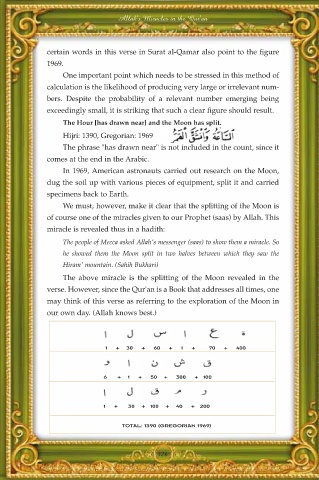 Allah's Miracles in the Qur'an
certain words in this verse in Surat al-Qamar also point to the figure
1969.
One important point which needs to be stressed in this method of
calculation is the likelihood of producing very large or irrelevant num-
bers. Despite the probability of a relevant number emerging being
exceedingly small, it is striking that such a clear figure should result.
The Hour [has drawn near] and the Moon has split.
Hijri: 1390, Gregorian: 1969 السَّاعَةُ وَانْشَقَّ الْقَمَرُ
The phrase "has drawn near" is not included in the count, since it
comes at the end in the Arabic.
In 1969, American astronauts carried out research on the Moon,
dug the soil up with various pieces of equipment, split it and carried
specimens back to Earth.
We must, however, make it clear that the splitting of the Moon is
of course one of the miracles given to our Prophet (saas) by Allah. This
miracle is revealed thus in a hadith:
The people of Mecca asked Allah's messenger (saas) to show them a miracle. So
he showed them the Moon split in two halves between which they saw the
Hiram' mountain. (Sahih Bukhari)
The above miracle is the splitting of the Moon revealed in the
verse. However, since the Qur'an is a Book that addresses all times, one
may think of this verse as referring to the exploration of the Moon in
our own day. (Allah knows best.)
ا ل س ا ع ة
1 + 30 + 60 + 1 + 70 + 400
و ا ن ش ق
6 + 1 + 50 + 300 + 100
ا ل ق م ر
1 + 30 + 100 + 40 + 200
TOTAL: 1390 (GREGORIAN 1969)